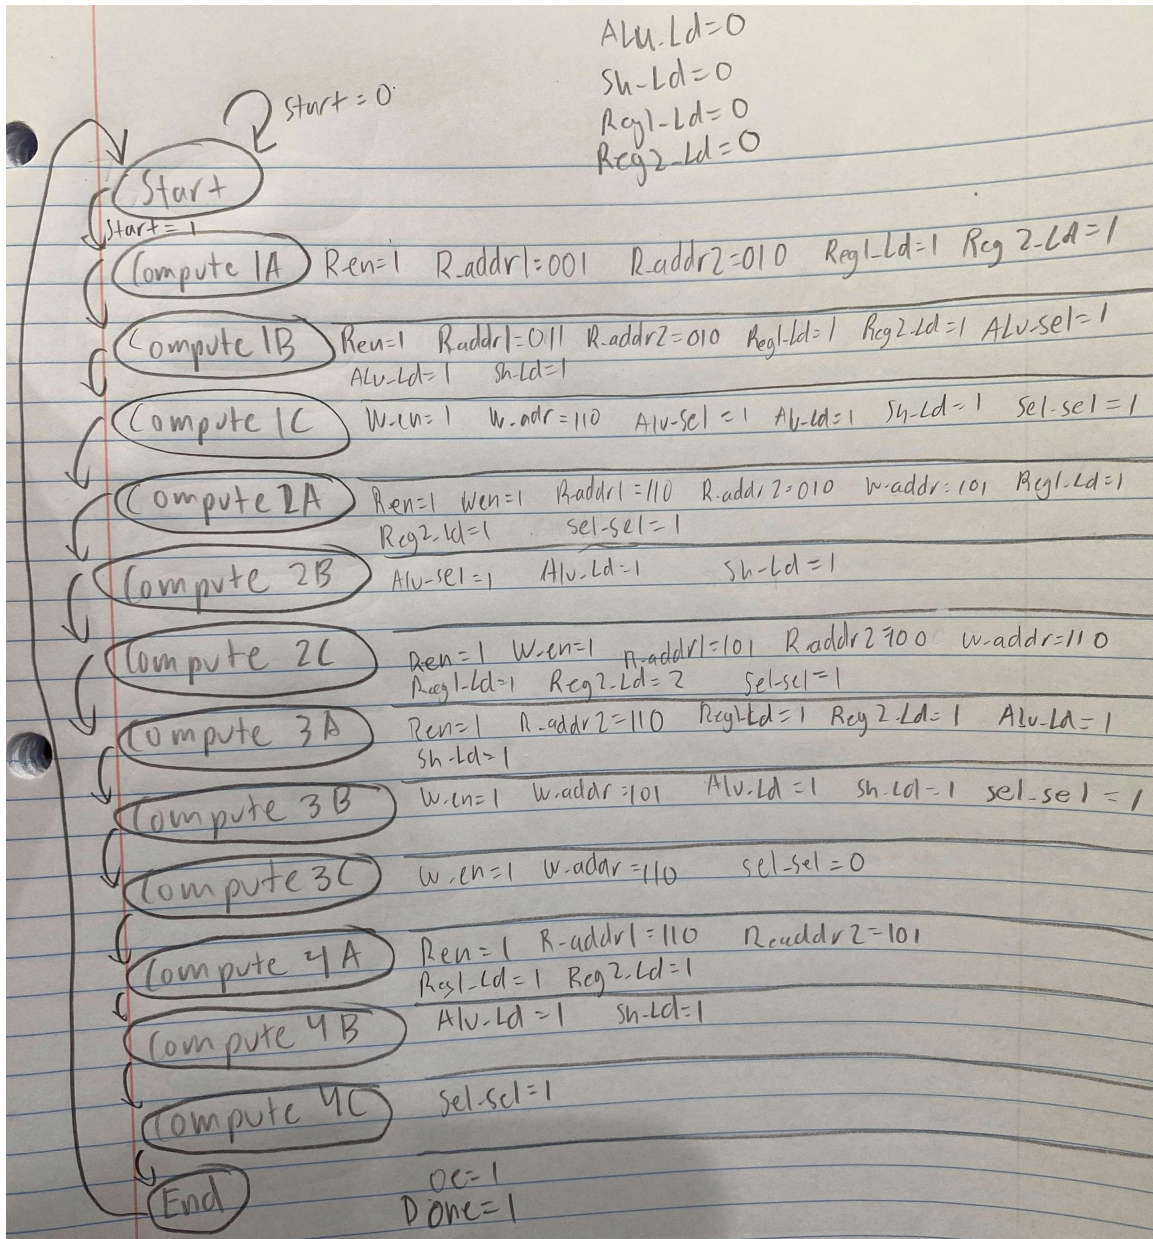 ALU_Ld=0
Sh_Ld=0
Reg1_Ld=0
Reg2_Ld=0
Start=0
Start
Start=1
Compute 1A Ren=1 R_addr1=001 R_addr2=010 Reg1_Ld=1 Reg2_Ld=1
Compute 1B Ren=1 Raddr1=011 R_addr2=010 Reg1_Ld=1 Reg2_Ld=1 ALU_sel=1
ALU_Ld=1 Sh_Ld=1
Compute 1C W_en=1 W_adr=110 Alu_Sel=1 Alu_Ld=1 Sh_Ld=1 Sel_sel=1
Compute 2A Ren=1 Wen=1 R_addr1=110 R_addr2=010 W_addr=101 Reg1_Ld=1
Reg2_Ld=1 Sel_sel=1
Compute 2B Alu_sel=1 Alu_Ld=1 Sh_Ld=1
Compute 2C Ren=1 W_en=1 R_addr1=101 R_addr2=100 W_addr=110
Reg1_Ld=1 Reg2_Ld=2 Sel_sel=1
Compute 3A Ren=1 R_addr2=110 Reg1_Ld=1 Reg2_Ld=1 Alu_Ld=1
Sh_Ld=1
Compute 3B W_en=1 W_addr=101 Alu_Ld=1 Sh_Ld=1 sel_sel=1
Compute 3C W_en=1 W_addr=110 sel_sel=0
Compute 4A Ren=1 R_addr1=110 R_addr2=101
Reg1_Ld=1 Reg2_Ld=1
Compute 4B Alu_Ld=1 Sh_Ld=1
Compute 4C Sel_sel=1
End oe=1
Done=1